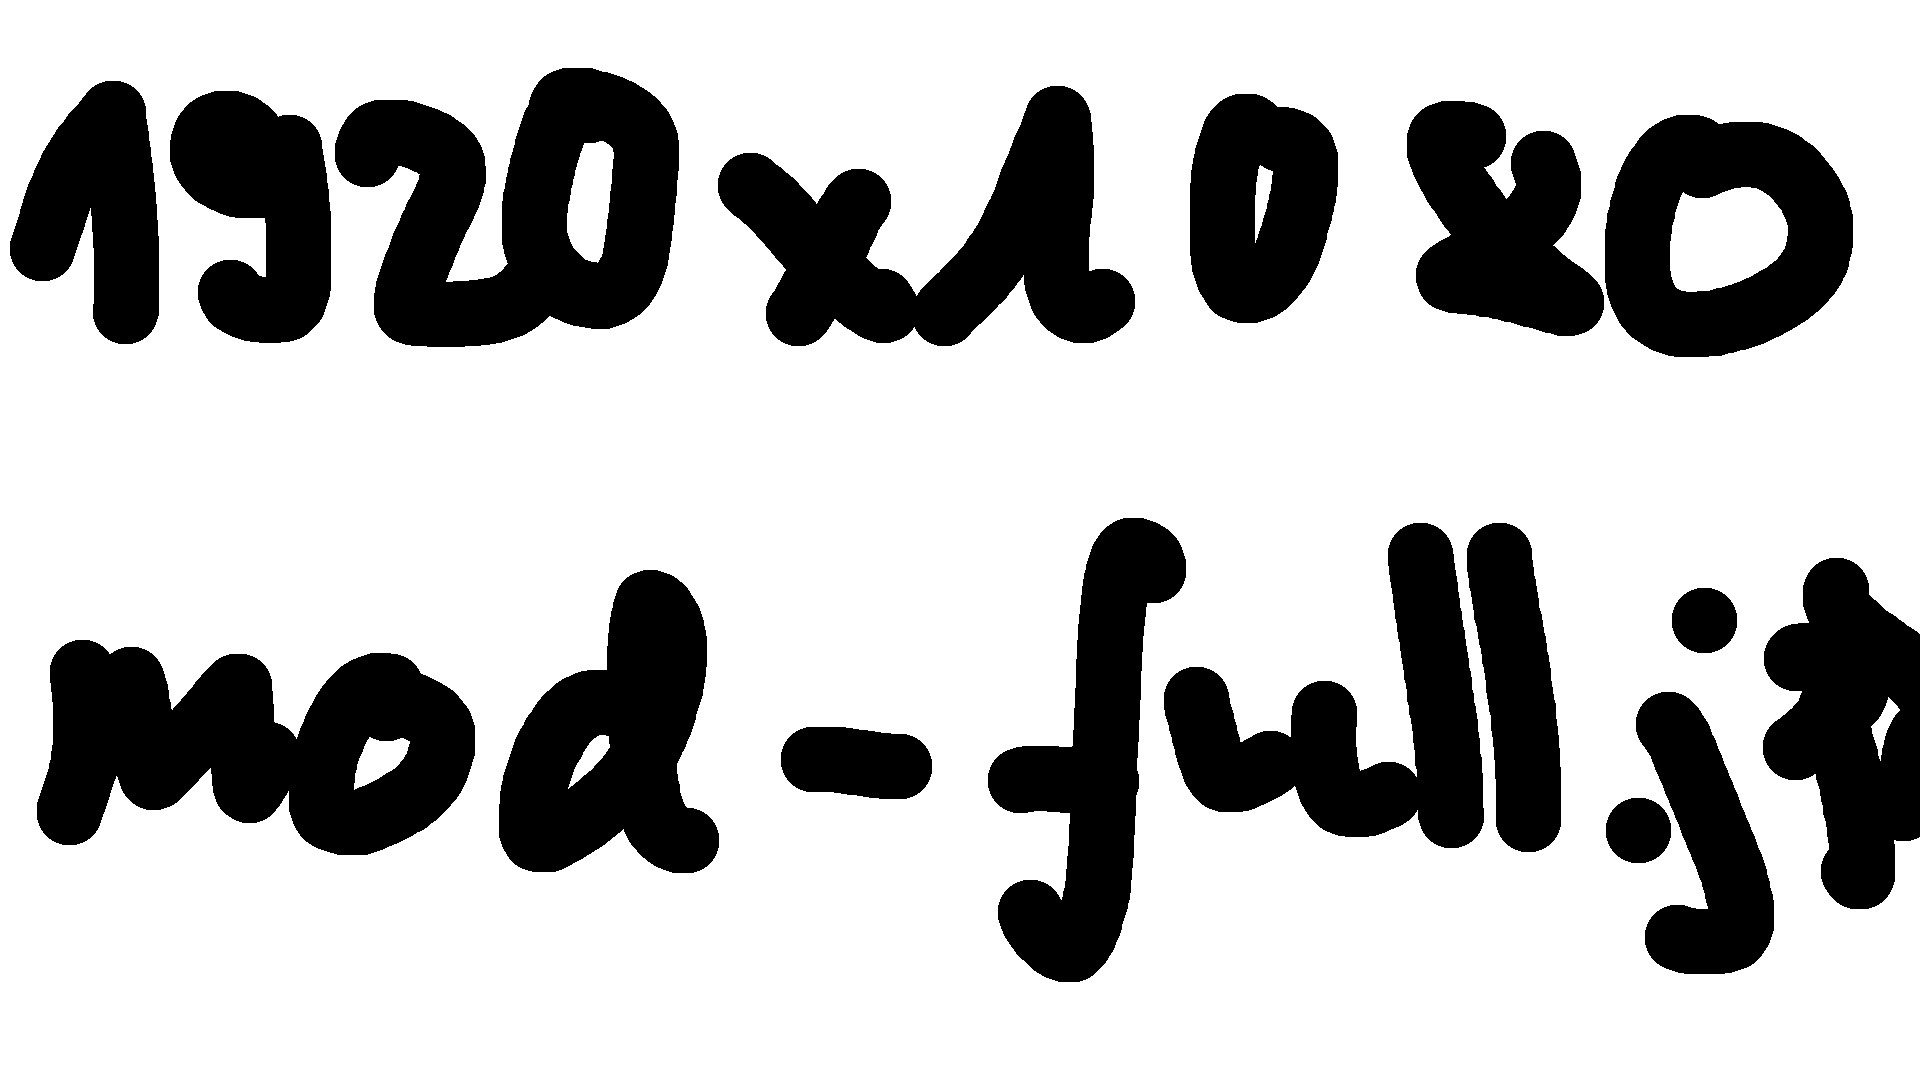 1920x1080
mod-full.j